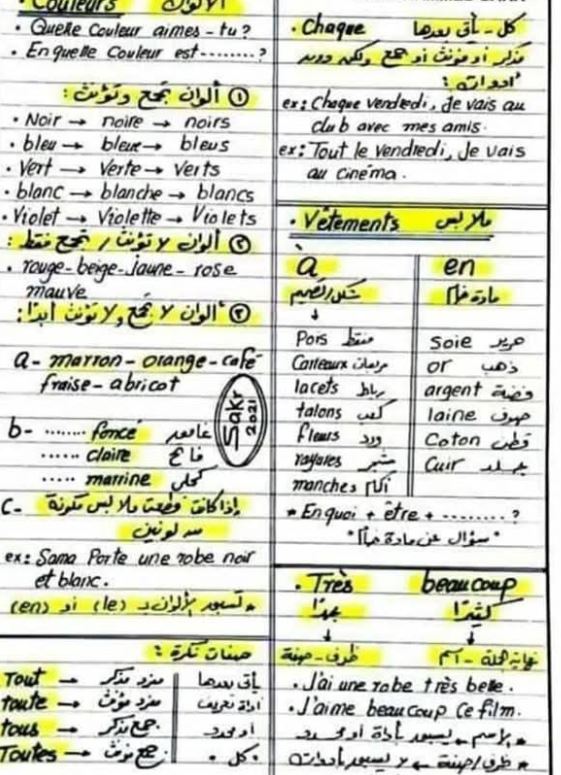 • Couleurs الألوان
• Quelle Couleur aimes-tu?
• En quelle Couleur est ........?
① ألوان تجمع وتؤنث :
• Noir → noire → noirs
• bleu → bleue → bleus
• Vert → Verte → Verts
• blanc → blanche → blancs
• Violet → Violette → Violets
② ألوان لا تؤنث / تجمع فقط :
• rouge - beige - jaune - rose
mauve
③ ألوان لا تجمع ولا تؤنث أبدًا :
a - marron - orange - café
fraise - abricot
b- ........ foncé غامق
...... claire فاتح
..... marrine كحلي
Sakr
2021
C- إذا كانت قطعة ملابس مكونة
من لونين
ex: Sama Porte une robe noir
et blanc.
* تسبق الألوان بـ (le) أو (en)
صفات نكرة :
Tout → مفرد مذكر
toute → مفرد مؤنث
tous → جمع مذكر
Toutes → جمع مؤنث
يأتى بعدها
أداة تعريف
أو محدد
• كل •
• Chaque كل - يأتى بعدها
مذكر أو مؤنث أو جمع ولكن بدون
أدوات :
ex: Chaque vendredi, Je vais au
club avec mes amis.
ex: Tout le Vendredi, Je Vais
au cinéma.
• Vêtements ملابس
à
شكل / تصميم
Pois منقط
Carreaux مربعات
lacets رباط
talons كعب
fleurs ورد
rayures مشجر
manches أكمام
en
مادة خام
Soie حرير
or ذهب
argent فضة
laine صوف
Coton قطن
Cuir جلد
* En quoi + être + ........?
"سؤال عن مادة خام"
• Très جدًا
ظرف - صفة
beaucoup كثيرًا
نهاية جملة - اسم
• J'ai une robe très belle.
• J'aime beaucoup Ce film.
* الاسم يسبق بأداة أو محدد
* ظرف/صفة لا يسبق بأدوات